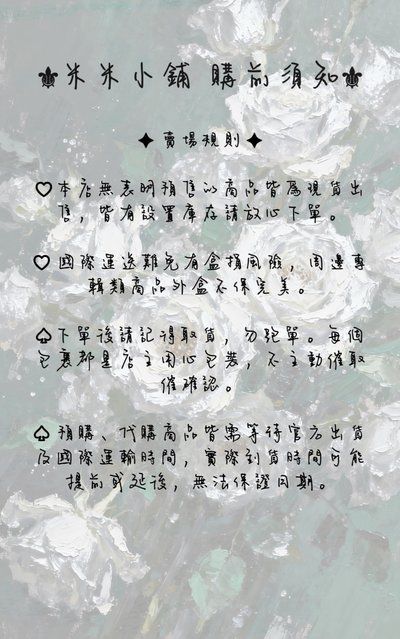 ⚜米米小鋪 購前須知⚜
✦賣場規則✦
♡本店無表明預售的商品皆為現貨出
售，皆有設置庫存請放心下單。
♡國際運送難免有盒損風險，周邊專
輯類商品外盒不保完美。
♤下單後請記得取貨，勿棄單。每個
包裹都是店主用心包裝，不主動催取
催確認。
♤預購、代購商品皆需等待官方出貨
及國際運輸時間，實際到貨時間可能
提前或延後，無法保證日期。